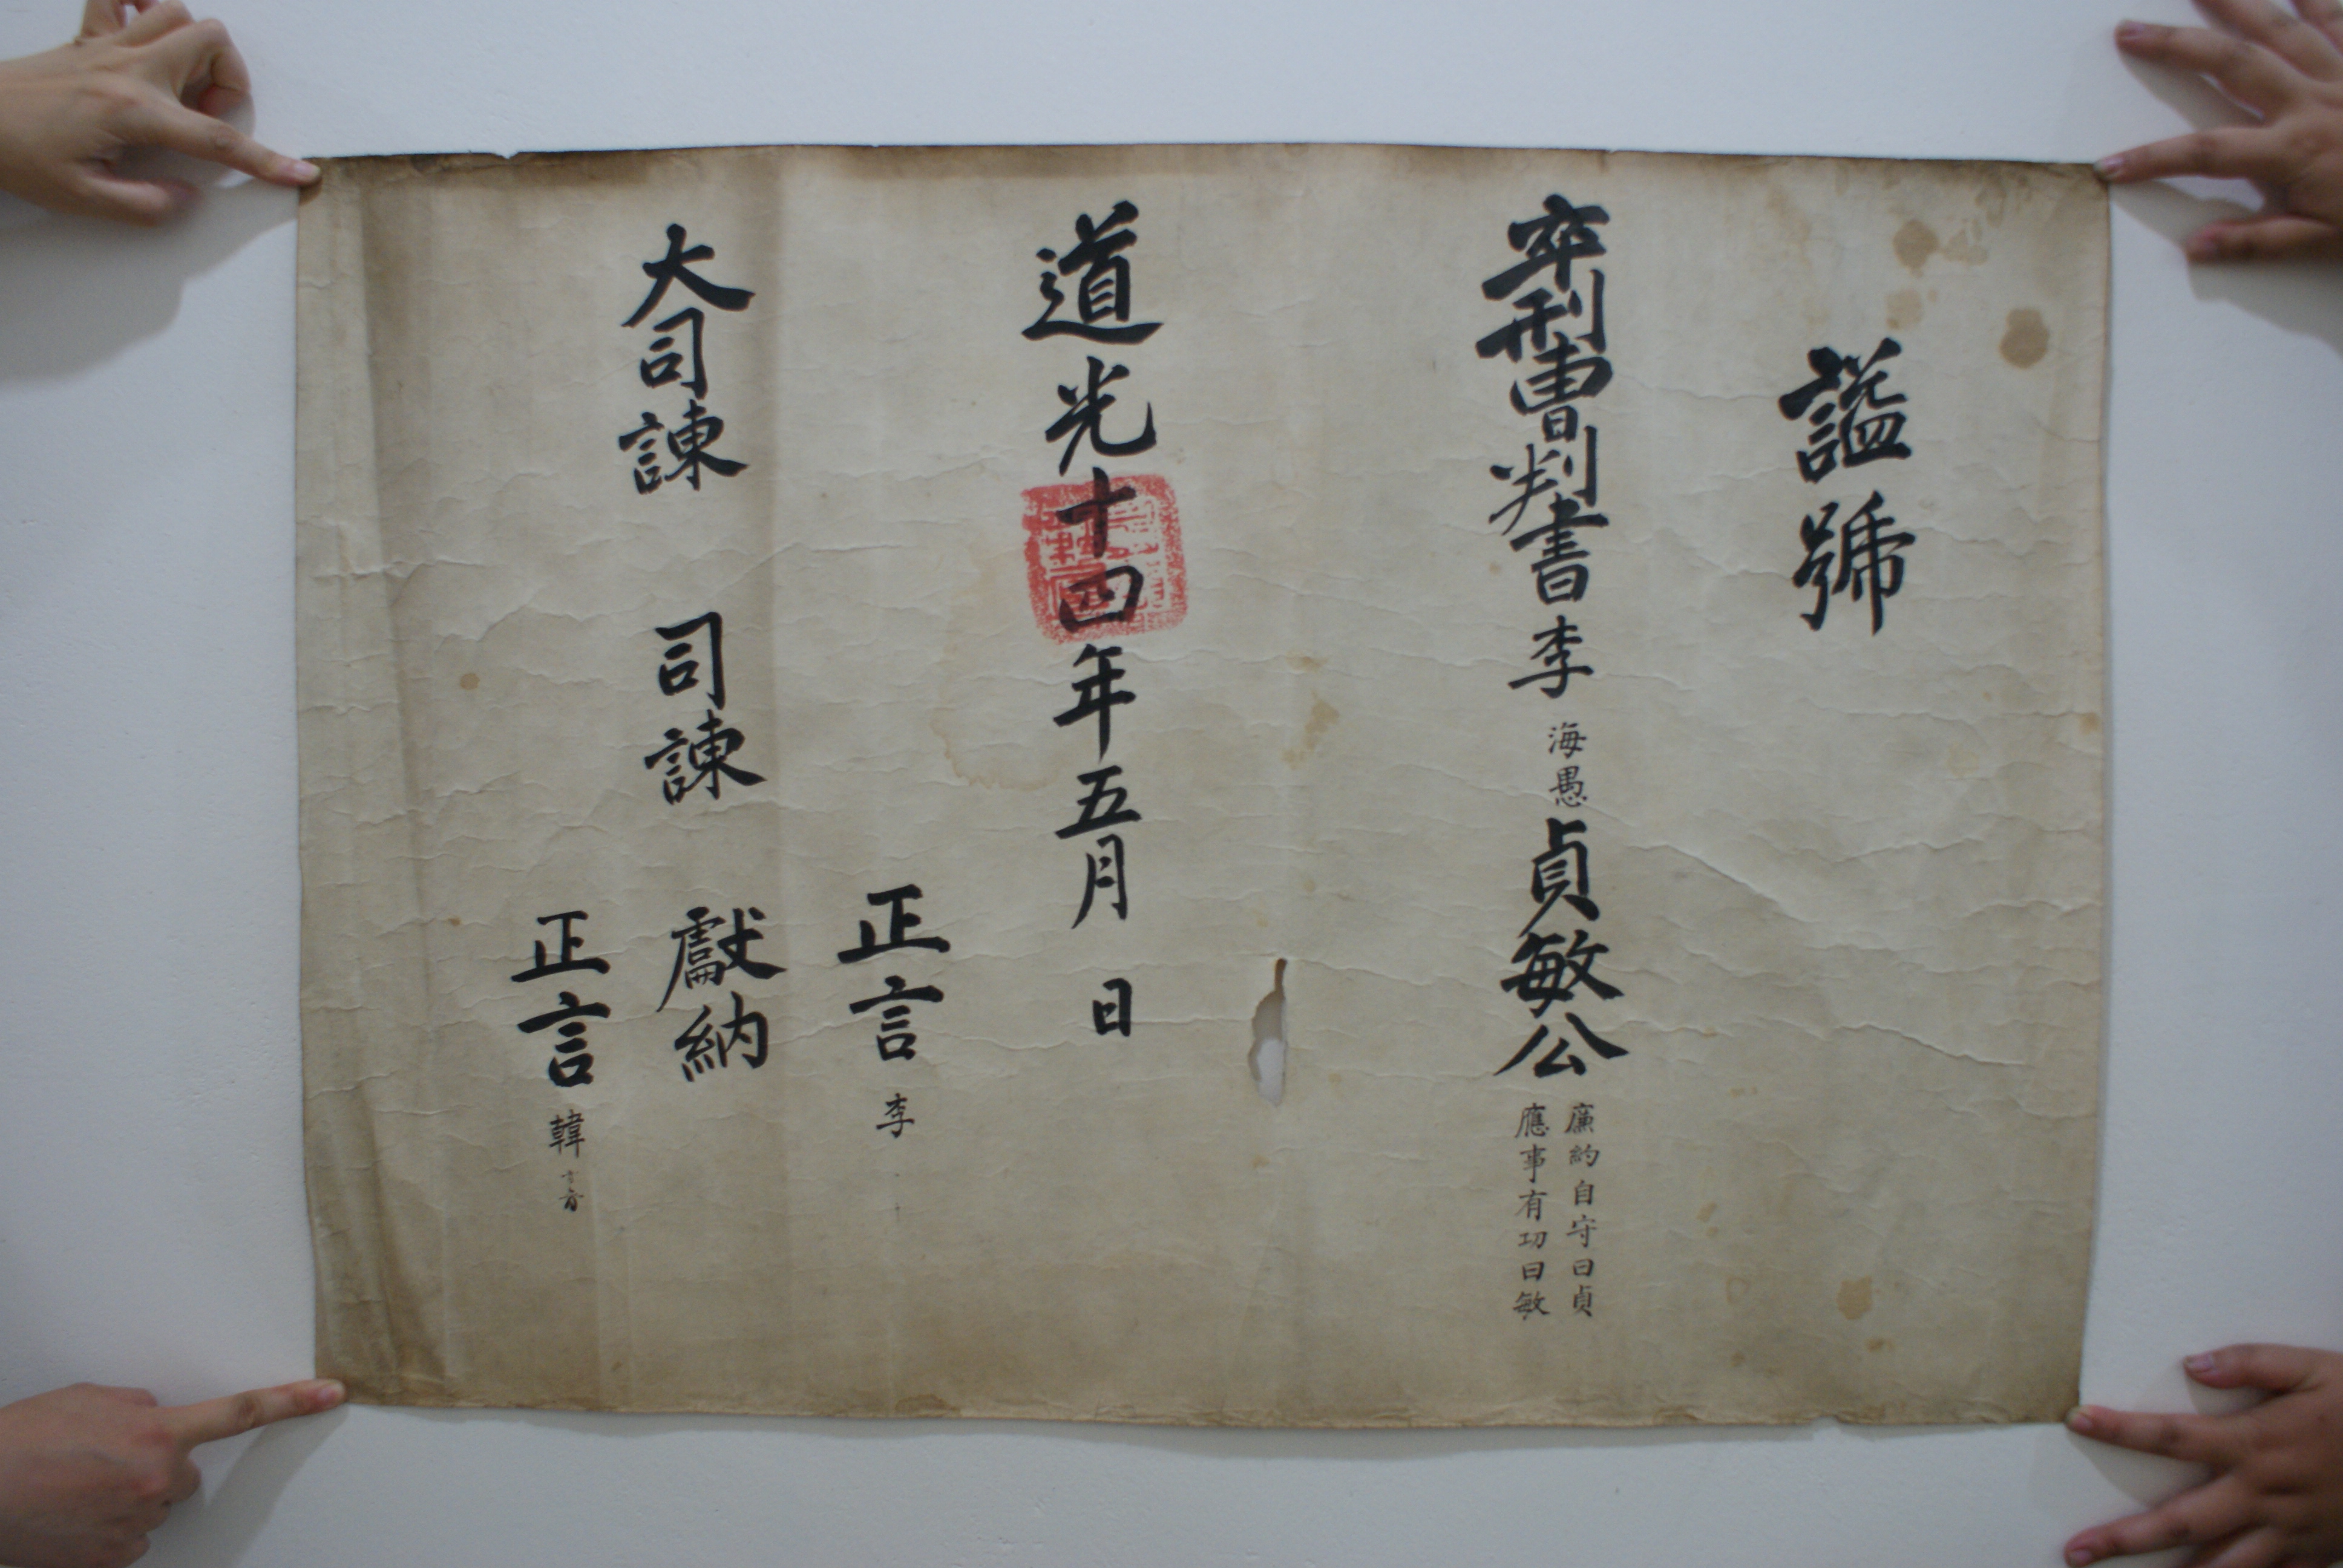 謚號
卒刑曹判書李海愚貞敏公
廉約自守曰貞
應事有功曰敏
道光十四年五月 日
正言 李
大司諫 司諫 獻納
正言 韓